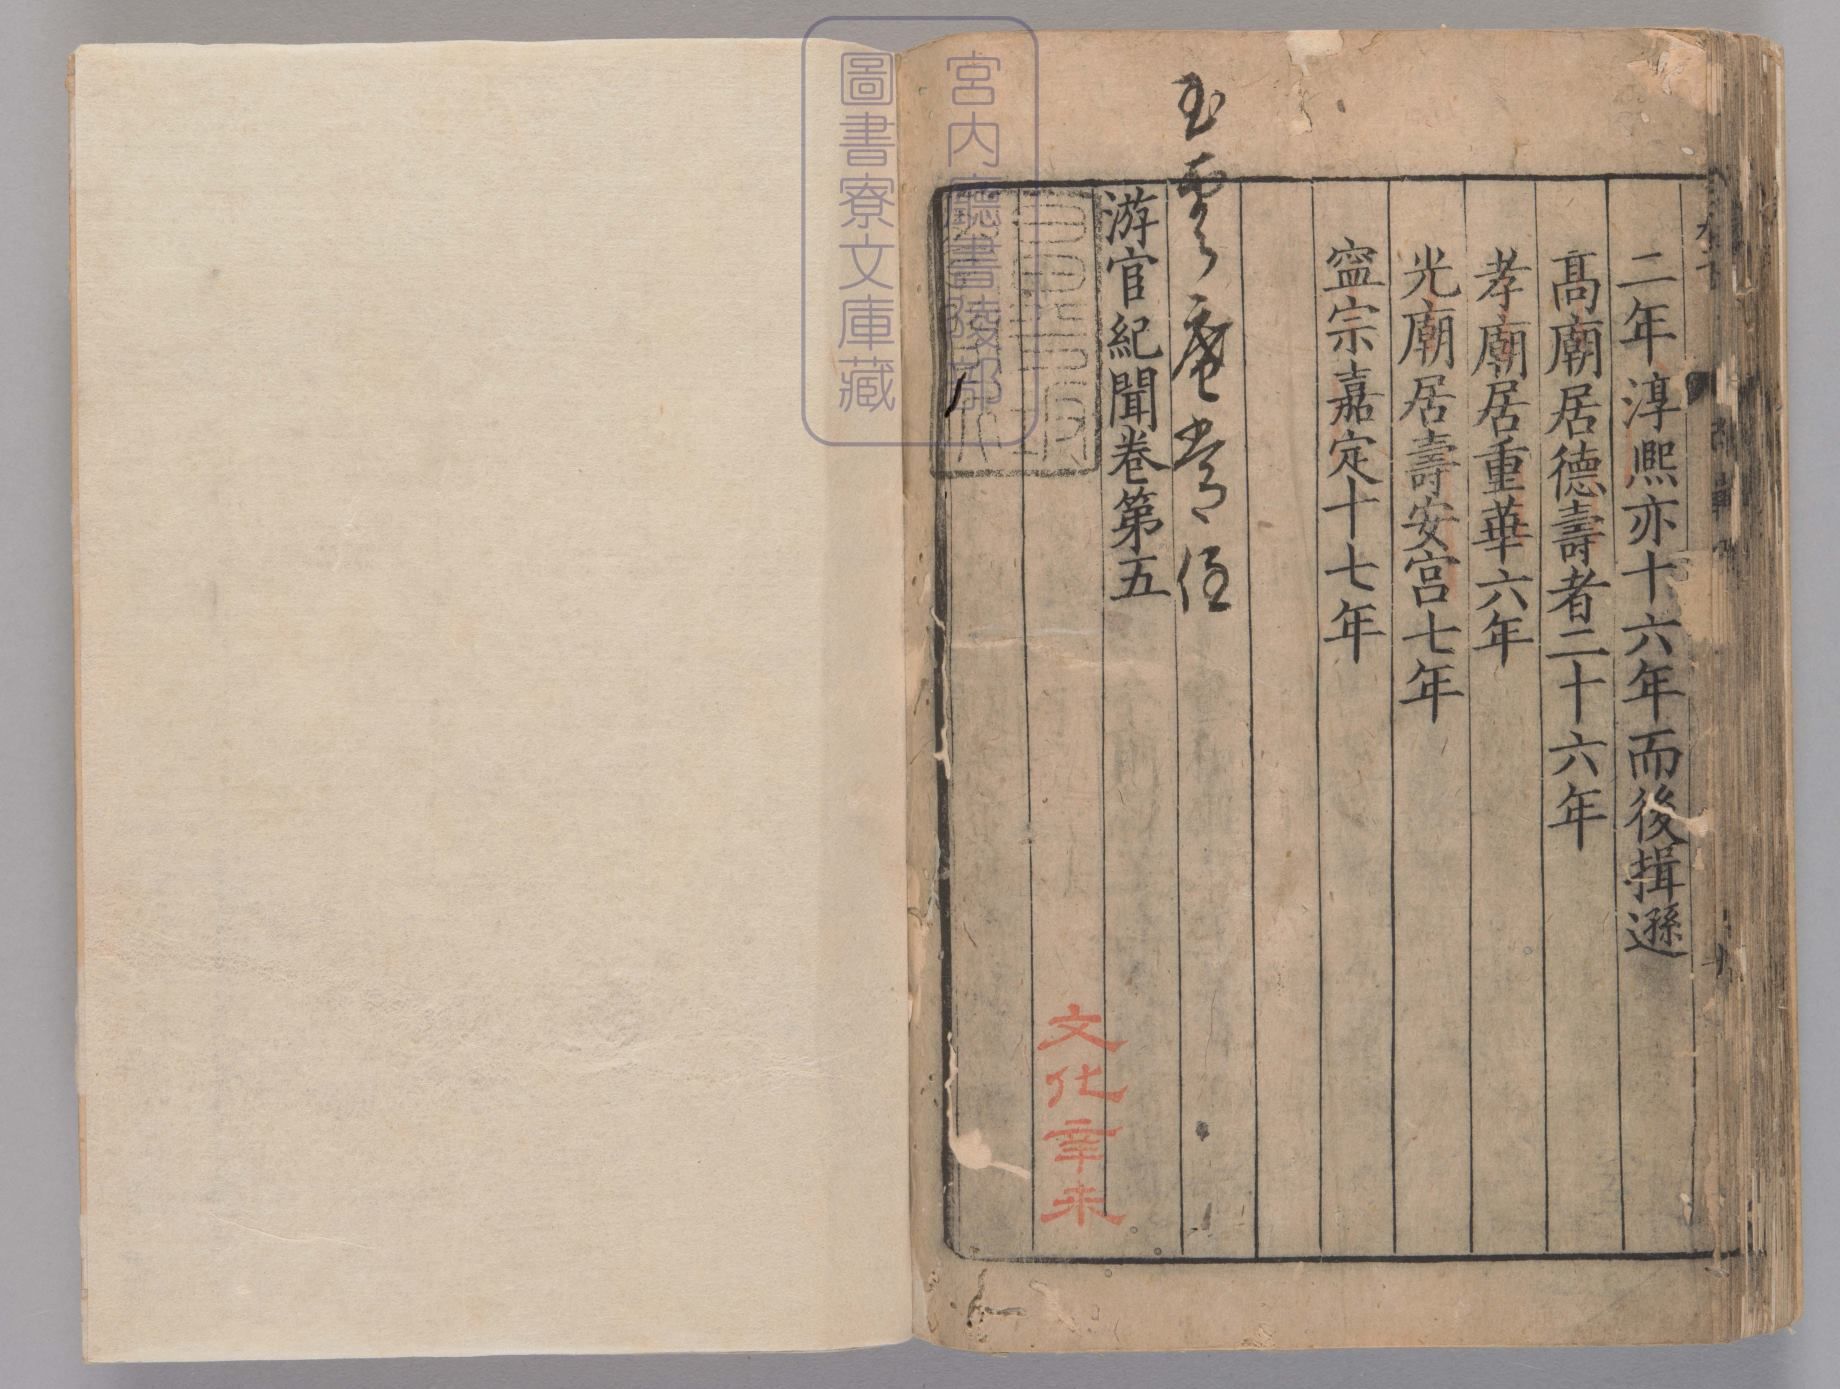 二年淳熈亦十六年而後揖遜
髙廟居德壽者二十六年
孝廟居重華六年
光廟居壽安宫七年
寍宗嘉定十七年
游官紀聞卷第五
文化辛未
宮内廳書陵部
圖書寮文庫藏